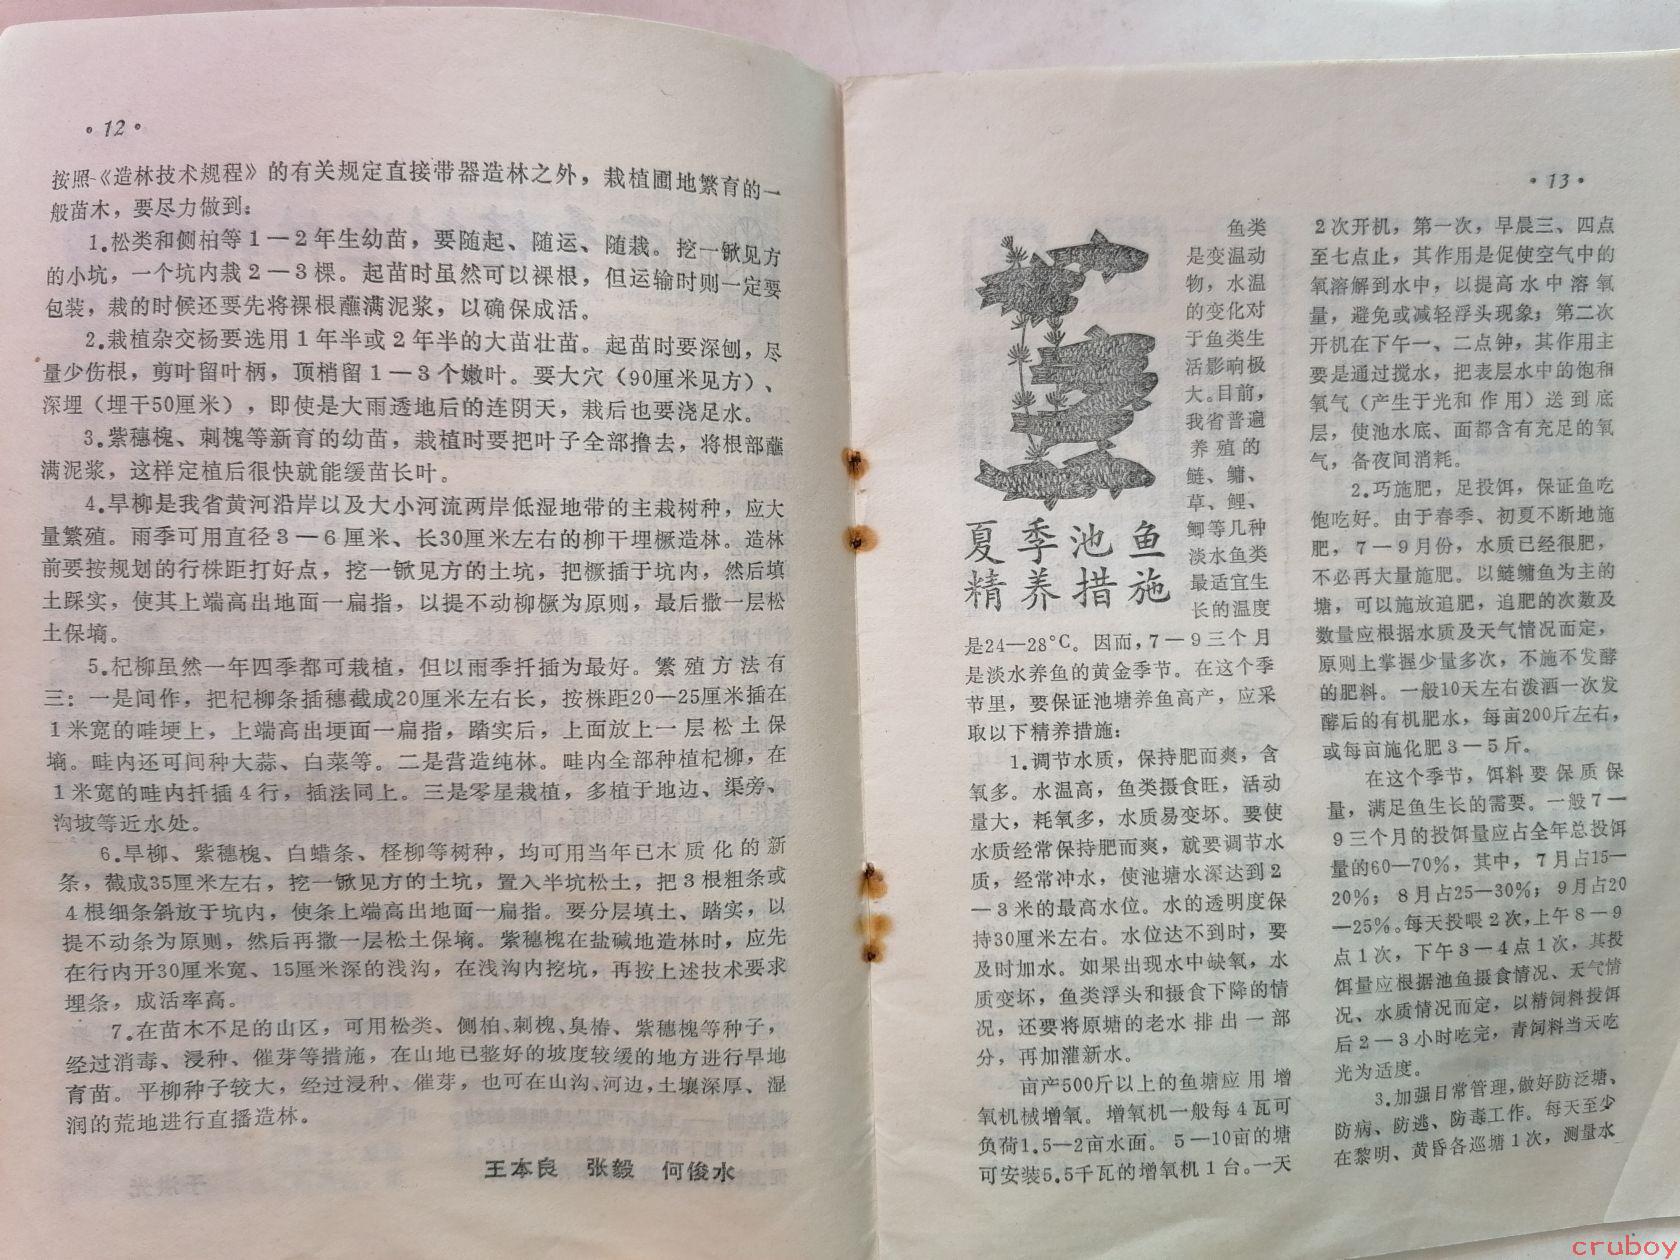 ·12·
按照《造林技术规程》的有关规定直接带器造林之外，栽植圃地繁育的一
般苗木，要尽力做到：
1.松类和侧柏等1—2年生幼苗，要随起、随运、随栽。挖一锨见方
的小坑，一个坑内栽2—3棵。起苗时虽然可以裸根，但运输时则一定要
包装，栽的时候还要先将裸根蘸满泥浆，以确保成活。
2.栽植杂交杨要选用1年半或2年半的大苗壮苗。起苗时要深刨，尽
量少伤根，剪叶留叶柄，顶梢留1—3个嫩叶。要大穴（90厘米见方）、
深埋（埋干50厘米），即使是大雨透地后的连阴天，栽后也要浇足水。
3.紫穗槐、刺槐等新育的幼苗，栽植时要把叶子全部撸去，将根部蘸
满泥浆，这样定植后很快就能缓苗长叶。
4.旱柳是我省黄河沿岸以及大小河流两岸低湿地带的主栽树种，应大
量繁殖。雨季可用直径3—6厘米、长30厘米左右的柳干埋橛造林。造林
前要按规划的行株距打好点，挖一锨见方的土坑，把橛插于坑内，然后填
土踩实，使其上端高出地面一扁指，以提不动柳橛为原则，最后撒一层松
土保墒。
5.杞柳虽然一年四季都可栽植，但以雨季扦插为最好。繁殖方法有
三：一是间作，把杞柳条插穗截成20厘米左右长，按株距20—25厘米插在
1米宽的畦埂上，上端高出埂面一扁指，踏实后，上面放上一层松土保
墒。畦内还可间种大蒜、白菜等。二是营造纯林。畦内全部种植杞柳，在
1米宽的畦内扦插4行，插法同上。三是零星栽植，多植于地边、渠旁、
沟坡等近水处。
6.旱柳、紫穗槐、白蜡条、柽柳等树种，均可用当年已木质化的新
条，截成35厘米左右，挖一锨见方的土坑，置入半坑松土，把3根粗条或
4根细条斜放于坑内，使条上端高出地面一扁指。要分层填土、踏实，以
提不动条为原则，然后再撒一层松土保墒。紫穗槐在盐碱地造林时，应先
在行内开30厘米宽、15厘米深的浅沟，在浅沟内挖坑，再按上述技术要求
埋条，成活率高。
7.在苗木不足的山区，可用松类、侧柏、刺槐、臭椿、紫穗槐等种子，
经过消毒、浸种、催芽等措施，在山地已整好的坡度较缓的地方进行旱地
育苗。平柳种子较大，经过浸种、催芽，也可在山沟、河边，土壤深厚、湿
润的荒地进行直播造林。
王本良　张毅　何俊水
·13·
夏季池鱼
精养措施
鱼类
是变温动
物，水温
的变化对
于鱼类生
活影响极
大。目前，
我省普遍
养殖的
鲢、鳙、
草、鲤、
鲫等几种
淡水鱼类
最适宜生
长的温度
是24—28°C。因而，7—9三个月
是淡水养鱼的黄金季节。在这个季
节里，要保证池塘养鱼高产，应采
取以下精养措施：
1.调节水质，保持肥而爽，含
氧多。水温高，鱼类摄食旺，活动
量大，耗氧多，水质易变坏。要使
水质经常保持肥而爽，就要调节水
质，经常冲水，使池塘水深达到2
—3米的最高水位。水的透明度保
持30厘米左右。水位达不到时，要
及时加水。如果出现水中缺氧，水
质变坏，鱼类浮头和摄食下降的情
况，还要将原塘的老水排出一部
分，再加灌新水。
亩产500斤以上的鱼塘应用增
氧机械增氧。增氧机一般每4瓦可
负荷1.5—2亩水面。5—10亩的塘
可安装5.5千瓦的增氧机1台。一天
2次开机，第一次，早晨三、四点
至七点止，其作用是促使空气中的
氧溶解到水中，以提高水中溶氧
量，避免或减轻浮头现象；第二次
开机在下午一、二点钟，其作用主
要是通过搅水，把表层水中的饱和
氧气（产生于光和作用）送到底
层，使池水底、面都含有充足的氧
气，备夜间消耗。
2.巧施肥，足投饵，保证鱼吃
饱吃好。由于春季、初夏不断地施
肥，7—9月份，水质已经很肥，
不必再大量施肥。以鲢鳙鱼为主的
塘，可以施放追肥，追肥的次数及
数量应根据水质及天气情况而定，
原则上掌握少量多次，不施不发酵
的肥料。一般10天左右泼洒一次发
酵后的有机肥水，每亩200斤左右，
或每亩施化肥3—5斤。
在这个季节，饵料要保质保
量，满足鱼生长的需要。一般7—
9三个月的投饵量应占全年总投饵
量的60—70%，其中，7月占15—
20%；8月占25—30%；9月占20
—25%。每天投喂2次，上午8—9
点1次，下午3—4点1次，其投
饵量应根据池鱼摄食情况、天气情
况、水质情况而定，以精饲料投饵
后2—3小时吃完，青饲料当天吃
光为适度。
3.加强日常管理，做好防泛塘、
防病、防逃、防毒工作。每天至少
在黎明、黄昏各巡塘1次，测量水
cruboy